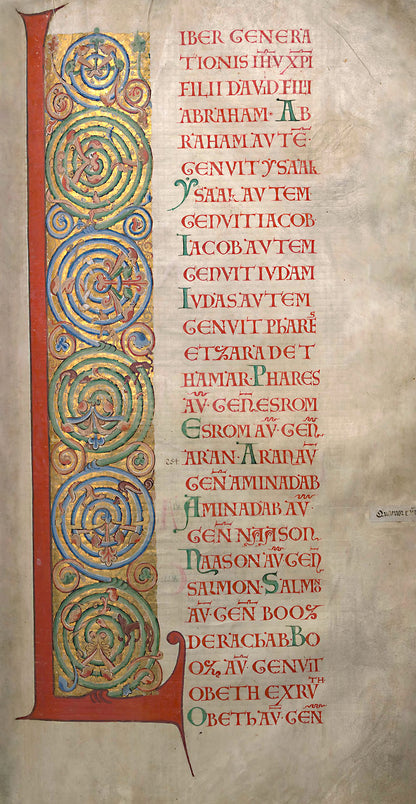 LIBER GENERA
TIONIS IHV XPI
FILII DAVID FILI
ABRAHAM· AB
RAHAM AVTE
GENVIT YSAAK
YSAAK AVTEM
GENVIT IACOB
IACOB AVTEM
GENVIT IVDAM
IVDAS AVTEM
GENVIT PHARES
ET ZARA DE T
HAMAR· PHARES
AV· GEN ESROM
ESROM AV· GEN
ARAN· ARAN AV
GEN AMINADAB
AMINADAB AV·
GEN NAASON
NAASON AV GEN
SALMON· SALMON
AV· GEN BOOZ
DE RACHAB· BO
OZ, AV· GENVIT
OBETH EX RVTH
OBETH AV· GEN